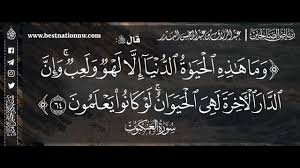 www.bestnationnw.com
قال ﷻ:
﴿ وَمَا هَٰذِهِ الْحَيَوٰةُ الدُّنْيَا إِلَّا لَهْوٌ وَلَعِبٌ ۚ وَإِنَّ
الدَّارَ الْآخِرَةَ لَهِيَ الْحَيَوَانُ ۚ لَوْ كَانُوا يَعْلَمُونَ ٦٤ ﴾
سورة العنكبوت